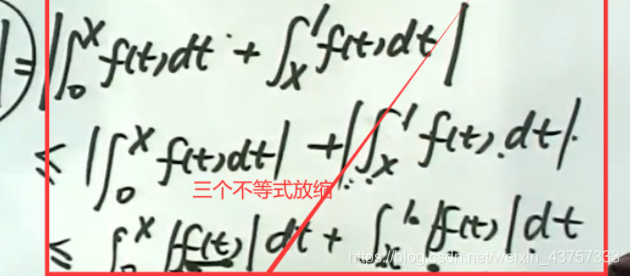 |=|∫₀ˣ f(t)dt + ∫ₓ¹ f(t)dt|
≤ |∫₀ˣ f(t)dt| + |∫ₓ¹ f(t)dt|
三个不等式放缩
≤ ∫₀ˣ |f(t)| dt + ∫ₓ¹ |f(t)| dt
https://blog.csdn.net/weixin_43757333